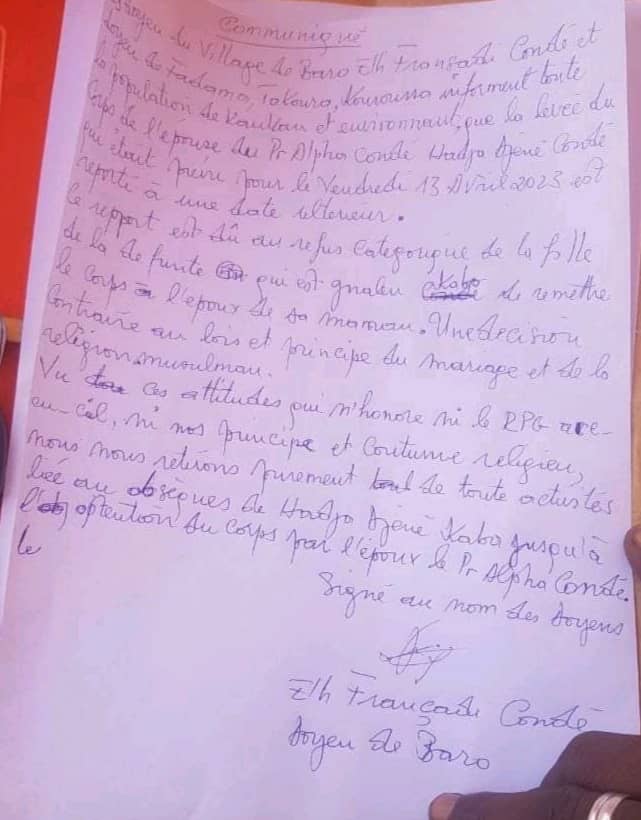 Communiqué
Doyen du Village de Baro Elh Françadi Condé et
doyen de Fadama, Takoura, Kouroussa informent toute
la population de Kankan et environnant, que la levée du
Corps de l'épouse du Pr Alpha Condé Hadja Djené Condé
qui était prévu pour le Vendredi 13 Avril 2023 est
reporté à une date ulterieur.
le repport est dû au refus Categorique de la fille
de la de funte qui est gnalen kaba de remettre
le corps a l'épour de sa maman. Une decision
Contraire au lois et principe du mariage et de la
religion musulman.
Vu ces attitudes qui n'honore ni le RPG arc-
en-ciel, ni nos principe et Coutume religieu,
nous nous retirons purement de toute activités
liée au obsèques de Hadja Djené Kaba jusqu'à
l'obtention du corps par l'épour le Pr Alpha Condé.
le
Signé au nom des doyens
Elh Françadi Condé
doyen de Baro